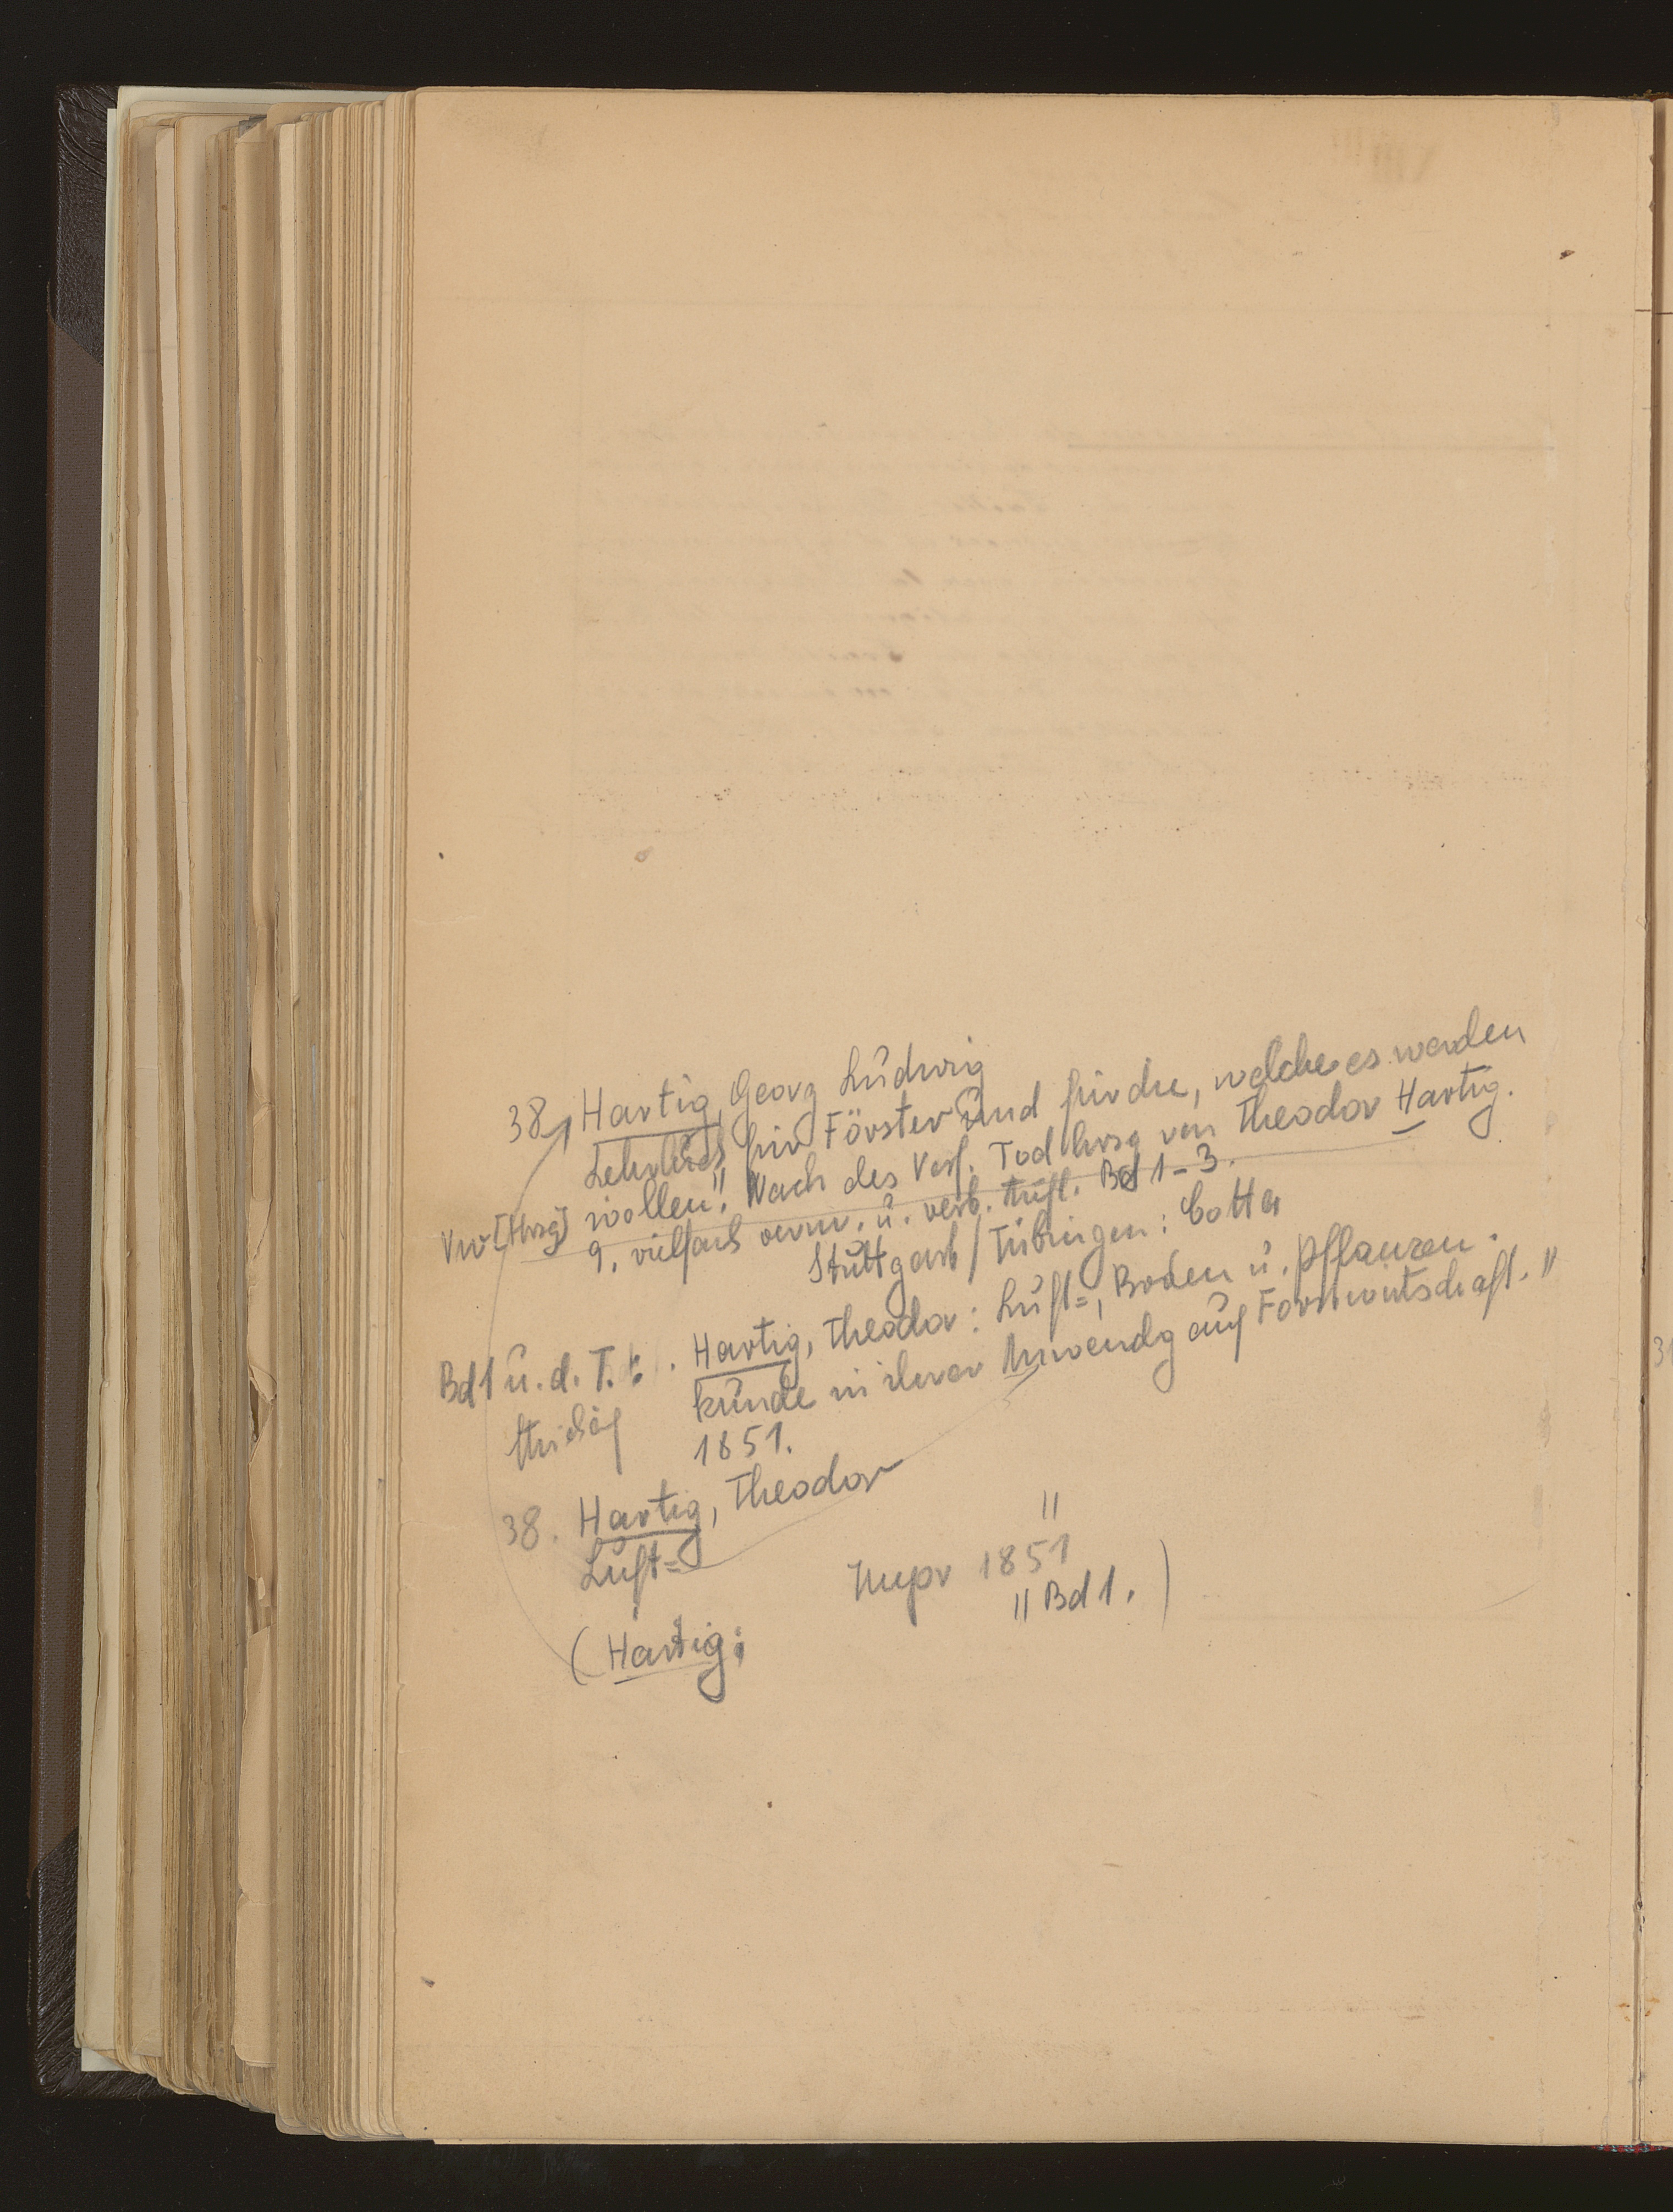 38 Hartig, Georg Ludwig
Lehrbuch für Förster und für die, welche es werden
wollen". Nach des Verf. Tod hrsg von Theodor Hartig.
Vw [Hrsg] 9. vielfach verm. u. verb. Aufl. Bd 1-3.
Stuttgart / Tübingen: Cotta
Bd 1 u. d. T.: Hartig, Theodor: Luft=, Boden u. Pflanzen.
kunde in ihrer Anwendg auf Forstwirtschaft."
1851.
38. Hartig, Theodor
Luft=
"
1851
(Hartig: " Bd 1.)